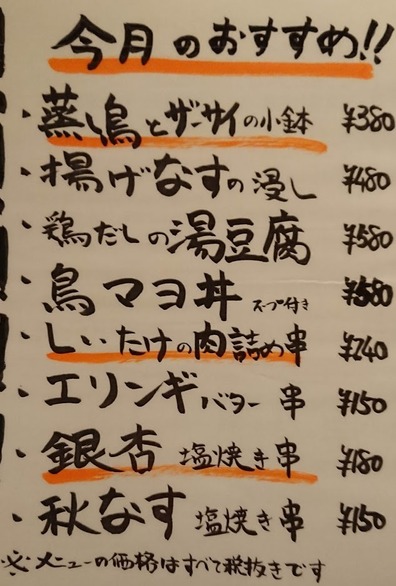 今月のおすすめ!!
・蒸し鳥とザーサイの小鉢 ¥380
・揚げなすの浸し ¥480
・鶏だしの湯豆腐 ¥580
・鳥マヨ丼 スープ付き ¥580
・しいたけの肉詰め串 ¥240
・エリンギバター串 ¥150
・銀杏塩焼き串 ¥180
・秋なす塩焼き串 ¥150
※メニューの価格はすべて税抜きです